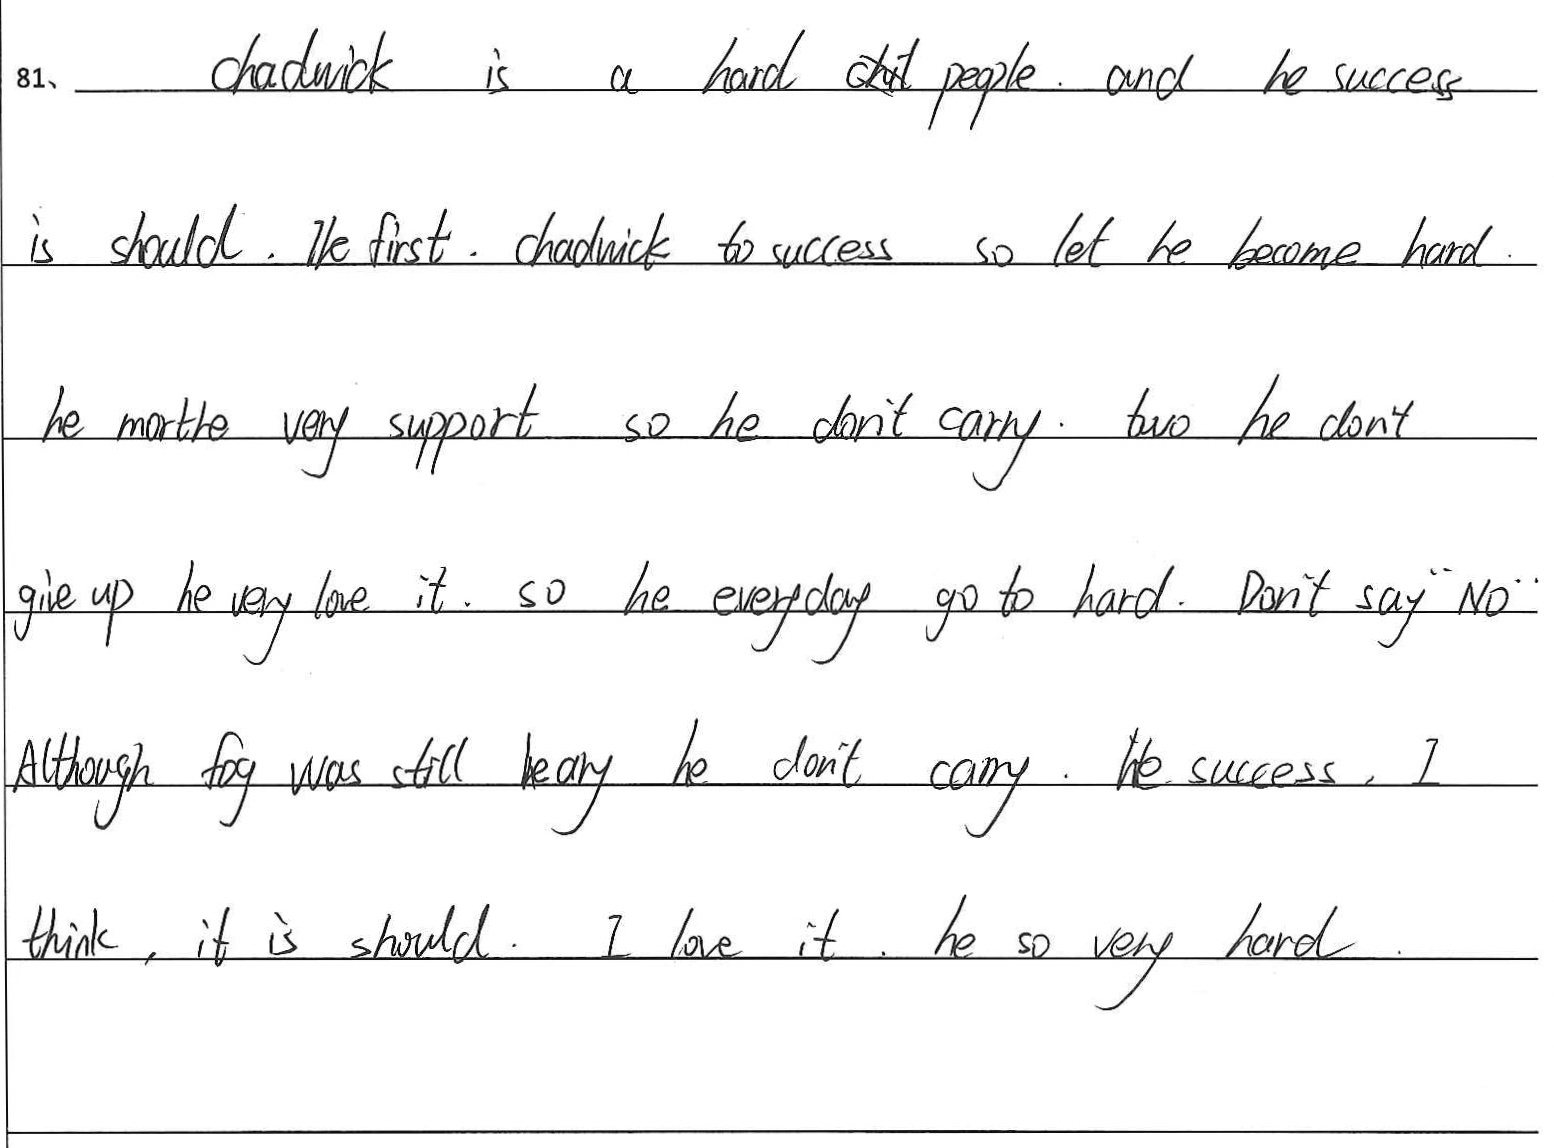 81、 chadwick is a hard people. and he success
is should. The first. chadwick to success so let he become hard.
he morthe very support so he don't carry. two he don't
give up he very love it. so he everyday go to hard. Don't say "NO"
Although fog was still heavy he don't carry. He success, I
think, it is should. I love it. he so very hard.